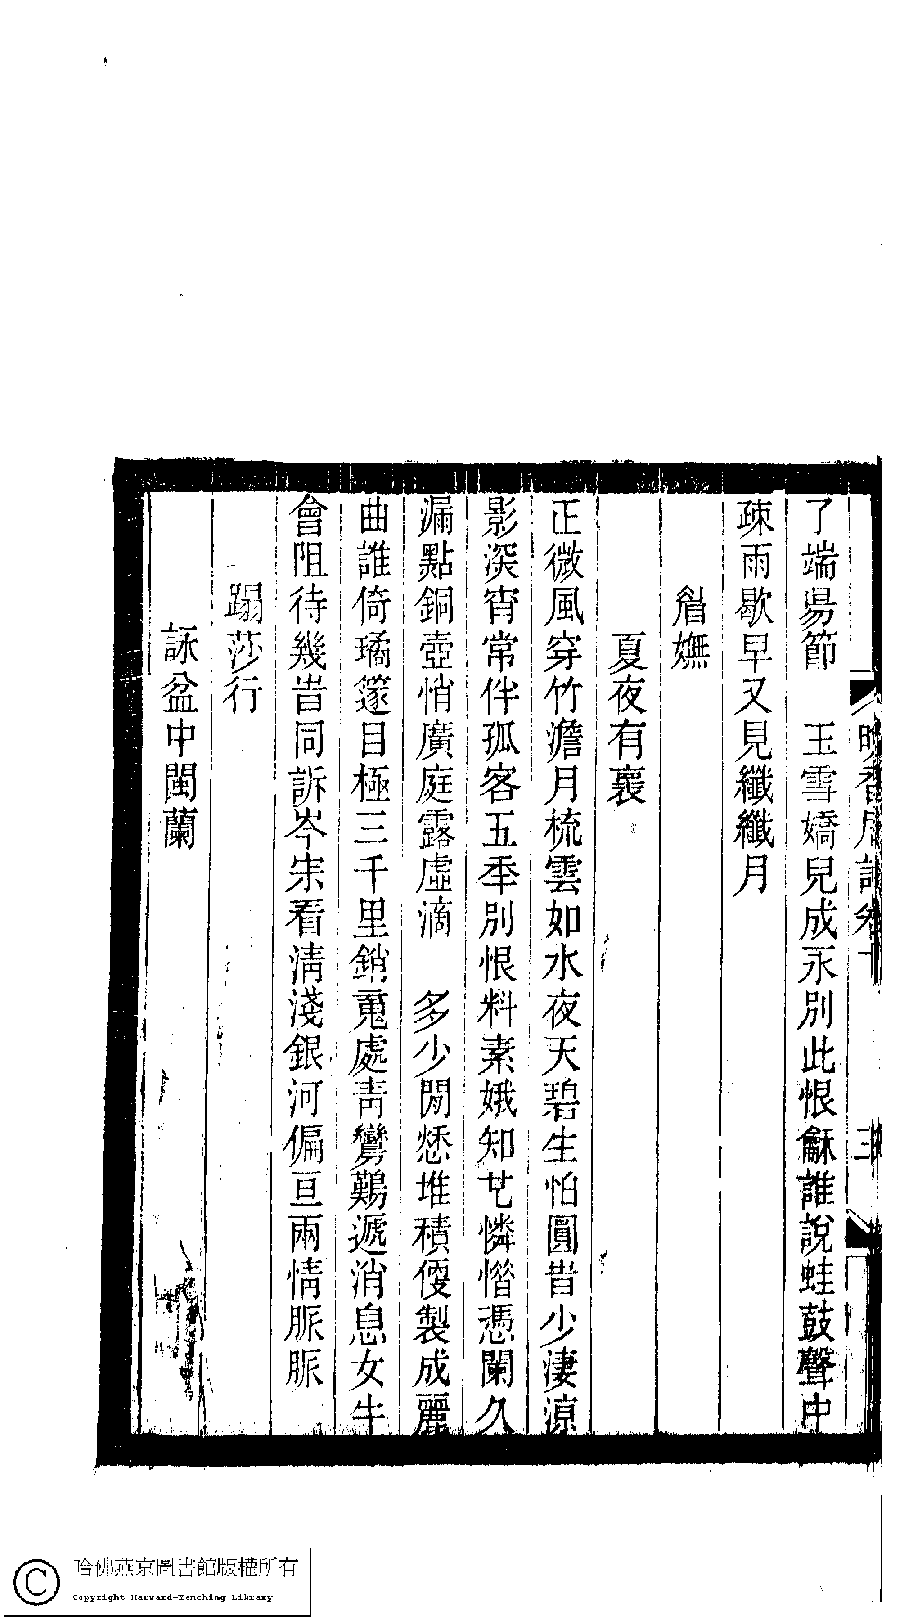 晚香居詞卷
三
了端昜節　玉雪嬌兒成永別此恨龢誰說蛙鼓聲中
疎雨歇早又見纖纖月
眉嫵
夏夜有褱
正微風穿竹澹月梳雲如水夜天碧生怕圓昔少淒涼
影深宵常伴孤客五秊別恨料素娥知芑憐惜憑闌久
漏點銅壺悄廣庭露虛滴　多少閒愁堆積㥄製成麗
曲誰倚璚篴目極三千里銷䰟處青鸞𪄿遞消息女牛
會阻待幾昔同訴岑宋看淸淺銀河偏亙兩情脈脈
蹋莎行
詠盆中閩蘭
哈佛燕京圖書館版權所有
Copyright Harvard-Yenching Library